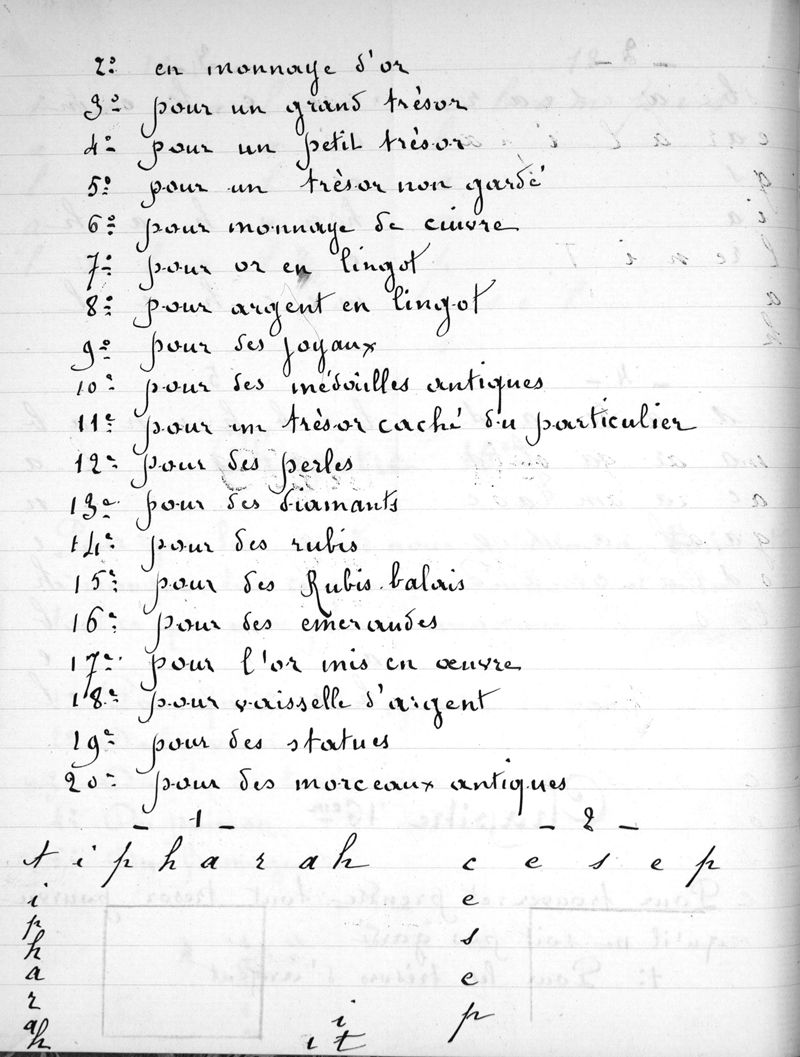 2° en monnaye d'or
3° pour un grand trèsor
4° pour un petit trèsor
5° pour un trèsor non gardé
6° pour monnaye de cuivre
7° pour or en lingot
8° pour argent en lingot
9° pour des joyaux
10e pour des médailles antiques
11e pour un trèsor caché du particulier
12e pour des perles
13e pour des diamants
14e pour des rubis
15e pour des Rubis balais
16e pour des emeraudes
17e pour l'or mis en œuvre
18e pour vaisselle d'argent
19e pour des statues
20e pour des morceaux antiques
- 1 - - 2 -
t i p h a r a h c e s e p
i e
p
h s
a e
r
a i p
h i t